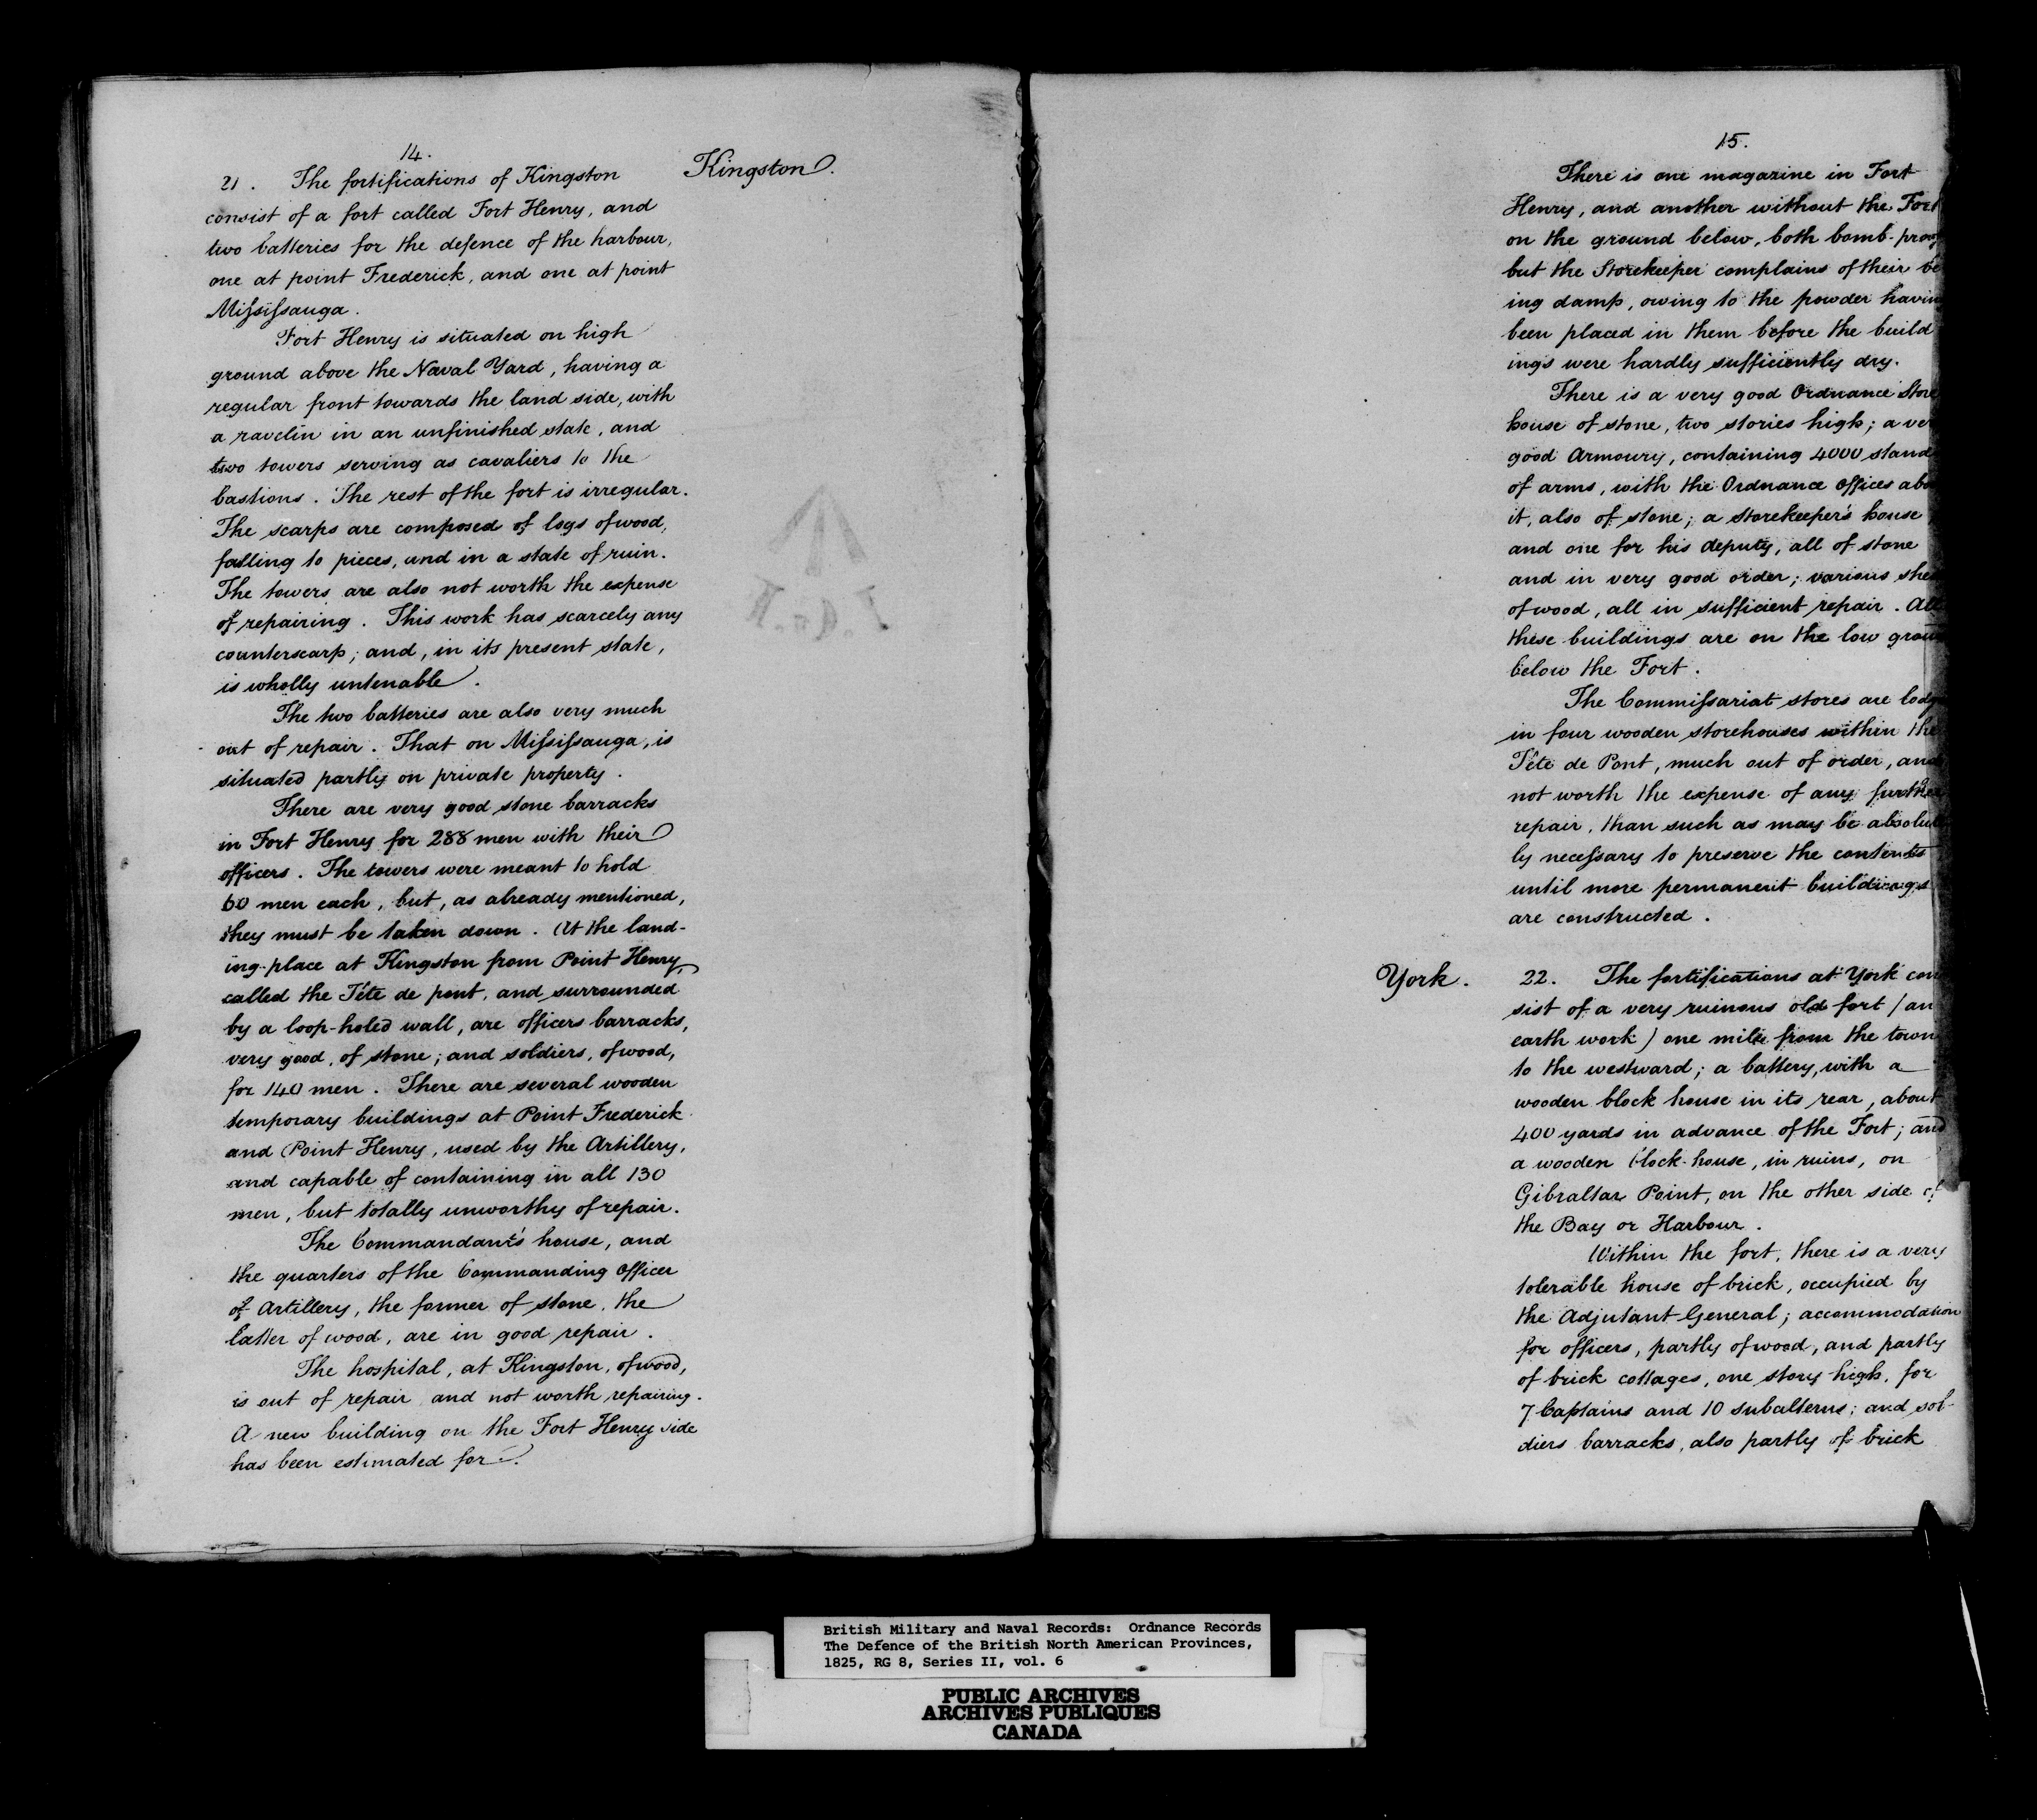 14.
Kingston.
21. The fortifications of Kingston
consist of a fort called Fort Henry, and
two batteries for the defence of the harbour,
one at point Frederick, and one at point
Mississauga.
Fort Henry is situated on high
ground above the Naval Yard, having a
regular front towards the land side, with
a ravelin in an unfinished state, and
two towers serving as cavaliers to the
bastions. The rest of the fort is irregular.
The scarps are composed of logs of wood,
falling to pieces, and in a state of ruin.
The towers are also not worth the expense
of repairing. This work has scarcely any
counterscarp; and, in its present state,
is wholly untenable.
The two batteries are also very much
out of repair. That on Mississauga, is
situated partly on private property.
There are very good stone barracks
in Fort Henry for 288 men with their
officers. The towers were meant to hold
60 men each, but, as already mentioned,
they must be taken down. At the land-
ing-place at Kingston from Point Henry,
called the Tête de pont, and surrounded
by a loop-holed wall, are officers barracks,
very good, of stone; and soldiers, of wood,
for 140 men. There are several wooden
temporary buildings at Point Frederick
and Point Henry, used by the Artillery,
and capable of containing in all 130
men, but totally unworthy of repair.
The Commandant's house, and
the quarters of the Commanding Officer
of Artillery, the former of stone, the
latter of wood, are in good repair.
The hospital, at Kingston, of wood,
is out of repair and not worth repairing.
A new building on the Fort Henry side
has been estimated for.
15.
There is one magazine in Fort
Henry, and another without the Fort
on the ground below, both bomb-proof
but the Storekeeper complains of their be
ing damp, owing to the powder having
been placed in them before the build
ings were hardly sufficiently dry.
There is a very good Ordnance Store
house of stone, two stories high; a ver
good Armoury, containing 4000 stand
of arms, with the Ordnance Offices abo
it, also of stone; a storekeeper's house
and one for his deputy, all of stone
and in very good order; various she
of wood, all in sufficient repair. All
these buildings are on the low groun
below the Fort.
The Commissariat stores are lodg
in four wooden storehouses within the
Tête de Pont, much out of order, and
not worth the expense of any further
repair, than such as may be absolute
ly necessary to preserve the contents
until more permanent buildings
are constructed.
York.
22. The fortifications at York con
sist of a very ruinous old fort (an
earth work) one mile from the town
to the westward; a battery, with a
wooden block house in its rear, about
400 yards in advance of the Fort; and
a wooden block-house, in ruins, on
Gibraltar Point, on the other side of
the Bay or Harbour.
Within the fort, there is a very
tolerable house of brick, occupied by
the Adjutant General; accommodation
for officers, partly of wood, and partly
of brick cottages, one story high, for
7 Captains and 10 subalterns; and sol-
diers barracks, also partly of brick
British Military and Naval Records: Ordnance Records
The Defence of the British North American Provinces,
1825, RG 8, Series II, vol. 6
PUBLIC ARCHIVES
ARCHIVES PUBLIQUES
CANADA